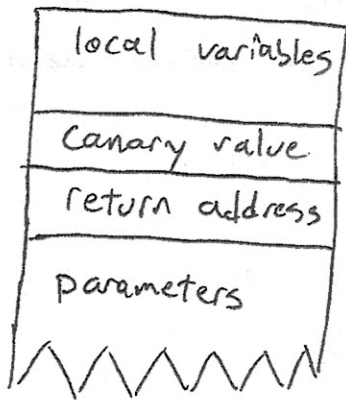 local variables
Canary value
return address
parameters